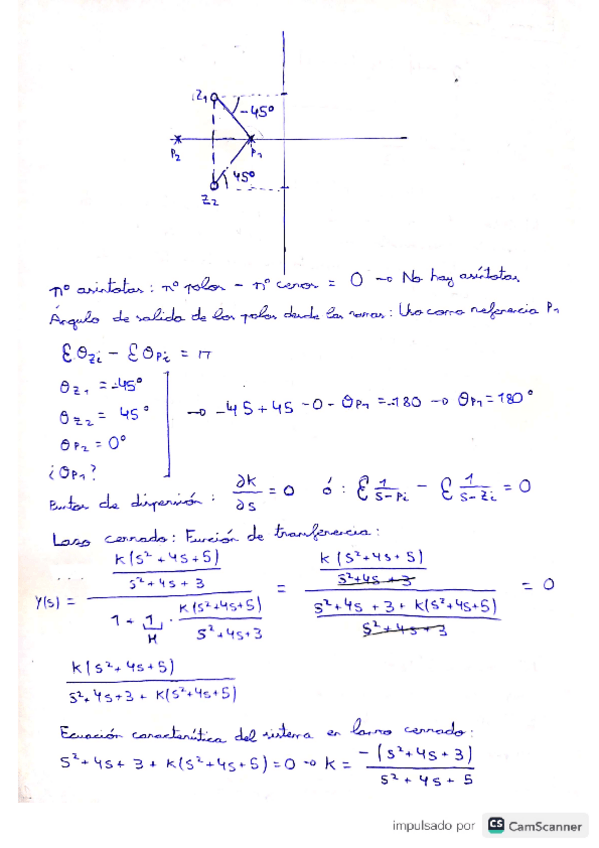 Z1
-45º
P2
P1
45º
Z2
nº asintotas: nº polos - nº ceros = 0 → No hay asíntotas.
Ángulo de salida de los polos desde las ramas: Uso como referencia P1
Σθzi - Σθpi = π
θz1 = -45º
θz2 = 45º
→ -45+45-0-θp1 = -180 → θp1 = 180º
θp2 = 0º
¿θp1?
Puntos de dispersión: ∂k/∂s = 0 ó: Σ 1/(s-pi) - Σ 1/(s-zi) = 0
Lazo cerrado: Función de transferencia:
Y(s) = (K(s²+4s+5)/(s²+4s+3)) / (1 + 1 · K(s²+4s+5)/(s²+4s+3)) = (K(s²+4s+5)/(s²+4s+3)) / ((s²+4s+3+K(s²+4s+5))/(s²+4s+3)) = 0
H
K(s²+4s+5)
s²+4s+3+K(s²+4s+5)
Ecuación característica del sistema en lazo cerrado:
s²+4s+3+K(s²+4s+5)=0 → k = -(s²+4s+3)/(s²+4s+5)
impulsado por CS CamScanner